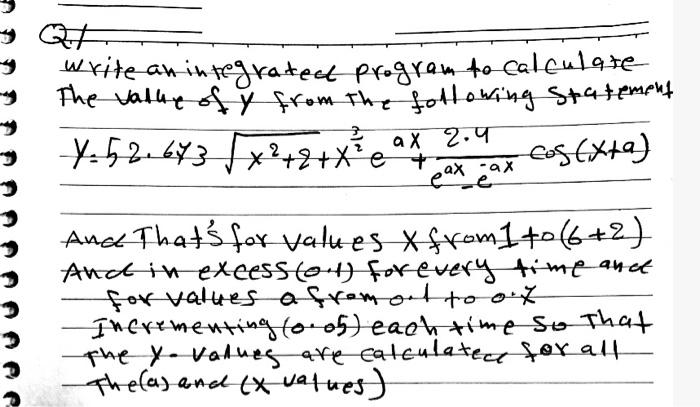 Q1/
write an integrated program to calculate
The value of y from The following Statement
y = 52.673 √x²+2 + x^(3/2) e^(ax) + 2.4/(e^(ax) - e^(-ax)) cos(x+a)
And That's for values x from 1 to (6+2)
And in excess (0.1) for every time and
for values a from 0.1 to 0.7
Incrementing (0.05) each time so That
The y-values are calculated for all
The (a) and (x values)